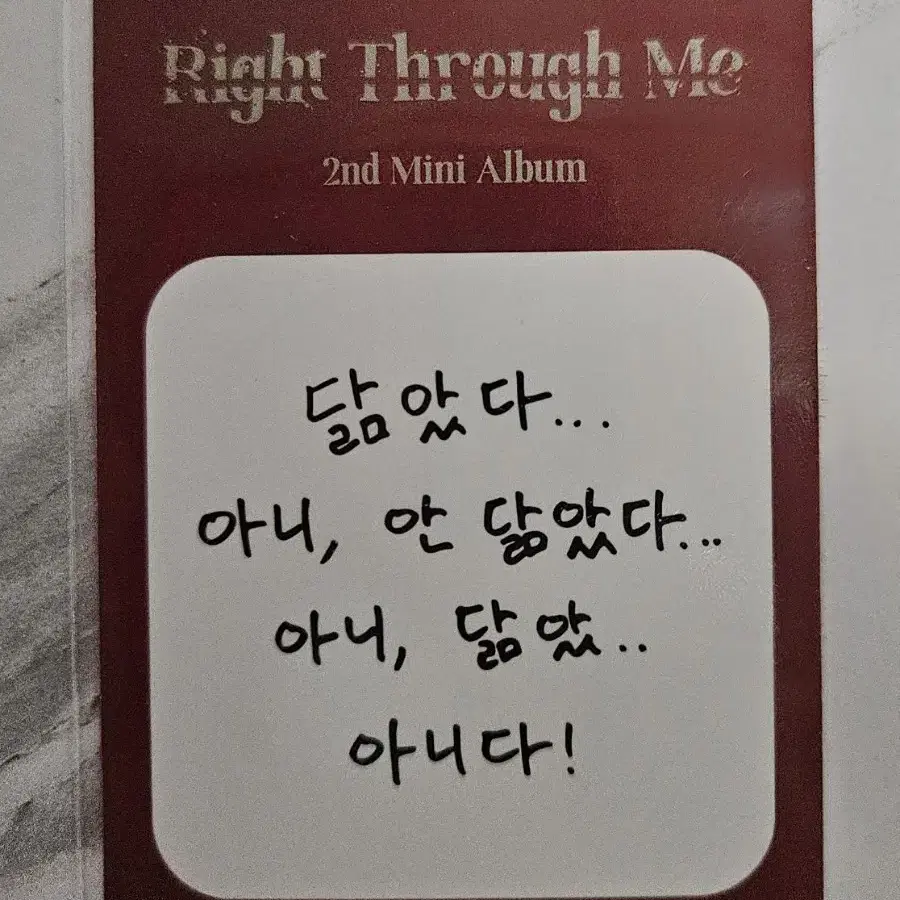 Right Through Me
2nd Mini Album
닮았다...
아니, 안 닮았다...
아니, 닮았..
아니다!